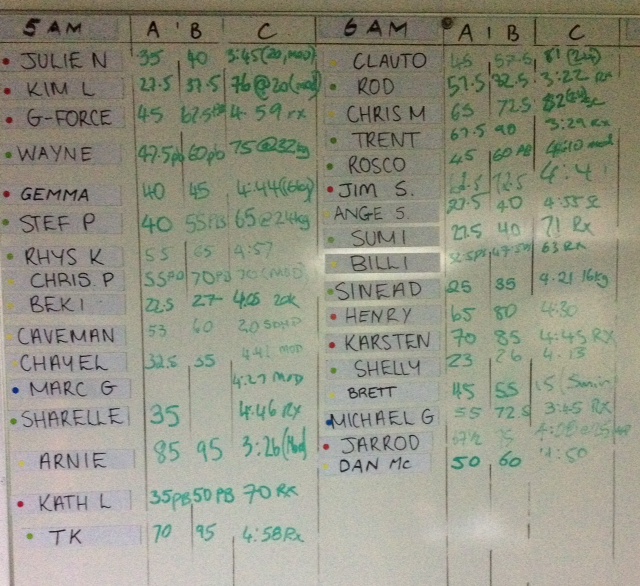 5 AM A B C
JULIE N 35 40 3:45 (20, mod)
KIM L 27.5 37.5 76 @ 20 (mod)
G-FORCE 45 62.5 4:59 rx
WAYNE 47.5 pb 60 pb 75 @ 32kg
GEMMA 40 45 4:44 (16kg)
STEF P 40 55 PB 65 @ 24kg
RHYS K 55 65 4:57
CHRIS. P 55 PB 70 PB 70 (MOD)
BEKI 22.5 27 4:05 20k
CAVEMAN 53 60
CHAYEL 32.5 35 MOD
MARC G 4:27 MOD
SHARELLE 35 4:46 Rx
ARNIE 85 95 3:26 (Mod)
KATH L 35 PB 50 PB 70 RX
TK 70 95 4:58 Rx
6 AM A B C
CLAUTO 45 57.5 81
ROD 57.5 82.5 3:22 Rx
CHRIS M 65 72.5 82
TRENT 67.5 90 3:29 Rx
ROSCO 45 60 PB 4:10 mod
JIM S. 72.5
ANGE S. 27.5 40 4:35
SUMI 27.5 40 71 Rx
BILLI 63 Rx
SINEAD 25 35 4:21 16kg
HENRY 65 80 4:30
KARSTEN 70 85 4:45 RX
SHELLY 23 26 4:13
BRETT 45 55
MICHAEL G 55 72.5 3:45 RX
JARROD 75
DAN Mc 50 60 4:50